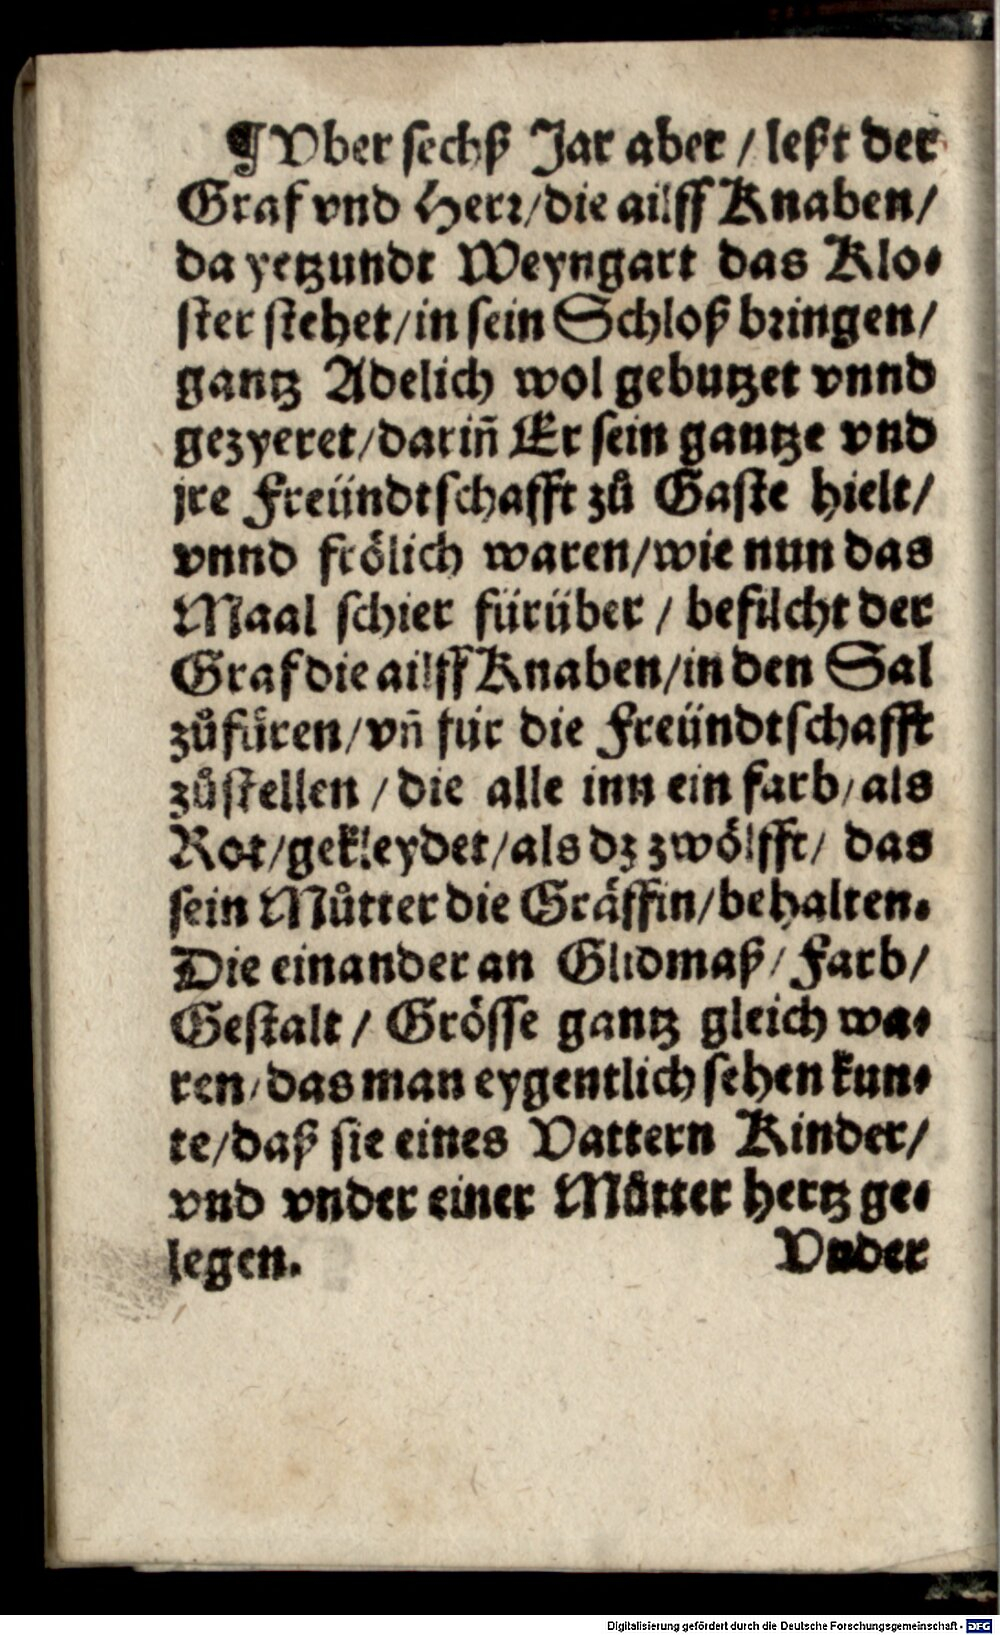 ¶ Vber sechß Jar aber / leßt der
Graf vnd Herr / die ailff Knaben /
da yetzundt Weyngart das Klo-
ster stehet / in sein Schloß bringen /
gantz Adelich wol gebutzet vnnd
gezyeret / dariñ Er sein gantze vnd
jre Freündtschafft zů Gaste hielt /
vnnd frölich waren / wie nun das
Maal schier fürüber / befilcht der
Graf die ailff Knaben / in den Sal
zůfüren / vñ für die Freündtschafft
zůstellen / die alle inn ein farb / als
Rot / gekleydet / als dz zwölfft / das
sein Můtter die Gräffin / behalten.
Die einander an Glidmaß / Farb /
Gestalt / Grösse gantz gleich wa-
ren / das man eygentlich sehen kun-
te / daß sie eines Vattern Kinder /
vnd vnder einer Můtter hertz ge-
legen.
Vnder
Digitalisierung gefördert durch die Deutsche Forschungsgemeinschaft - DFG